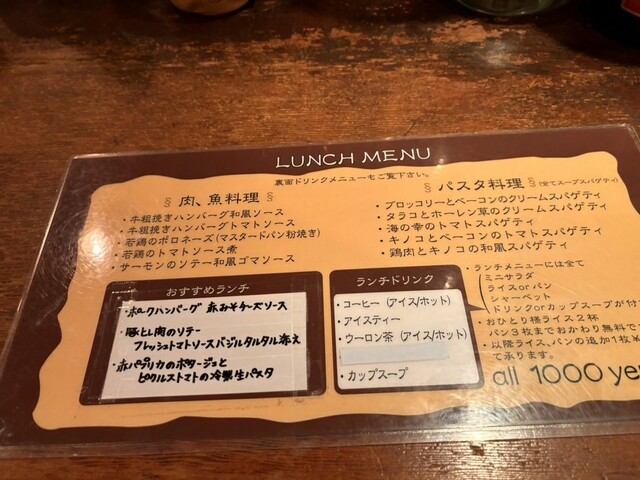 LUNCH MENU
裏面ドリンクメニューもご覧下さい。
§ 肉、魚料理 §
・牛粗挽きハンバーグ和風ソース
・牛粗挽きハンバーグトマトソース
・若鶏のポロネーズ(マスタードパン粉焼き)
・若鶏のトマトソース煮
・サーモンのソテー和風ゴマソース
§ パスタ料理 § (全てスープスパゲティ)
・ブロッコリーとベーコンのクリームスパゲティ
・タラコとホーレン草のクリームスパゲティ
・海の幸のトマトスパゲティ
・キノコとベーコンのトマトスパゲティ
・鶏肉とキノコの和風スパゲティ
おすすめランチ
・ポークハンバーグ 赤みそチーズソース
・豚とし肉のソテー
フレッシュトマトソースバジルタルタル添え
・赤パプリカのポタージュと
ピクルストマトの冷製生パスタ
ランチドリンク
・コーヒー (アイス/ホット)
・アイスティー
・ウーロン茶 (アイス/ホット)
・カップスープ
・ランチメニューには全て
ミニサラダ
ライスorパン
シャーベット
ドリンクorカップスープが付
・おひとり様ライス2杯
パン3枚までおかわり無料で
・以降ライス、パンの追加1枚¥
て承ります。
all 1000 yen